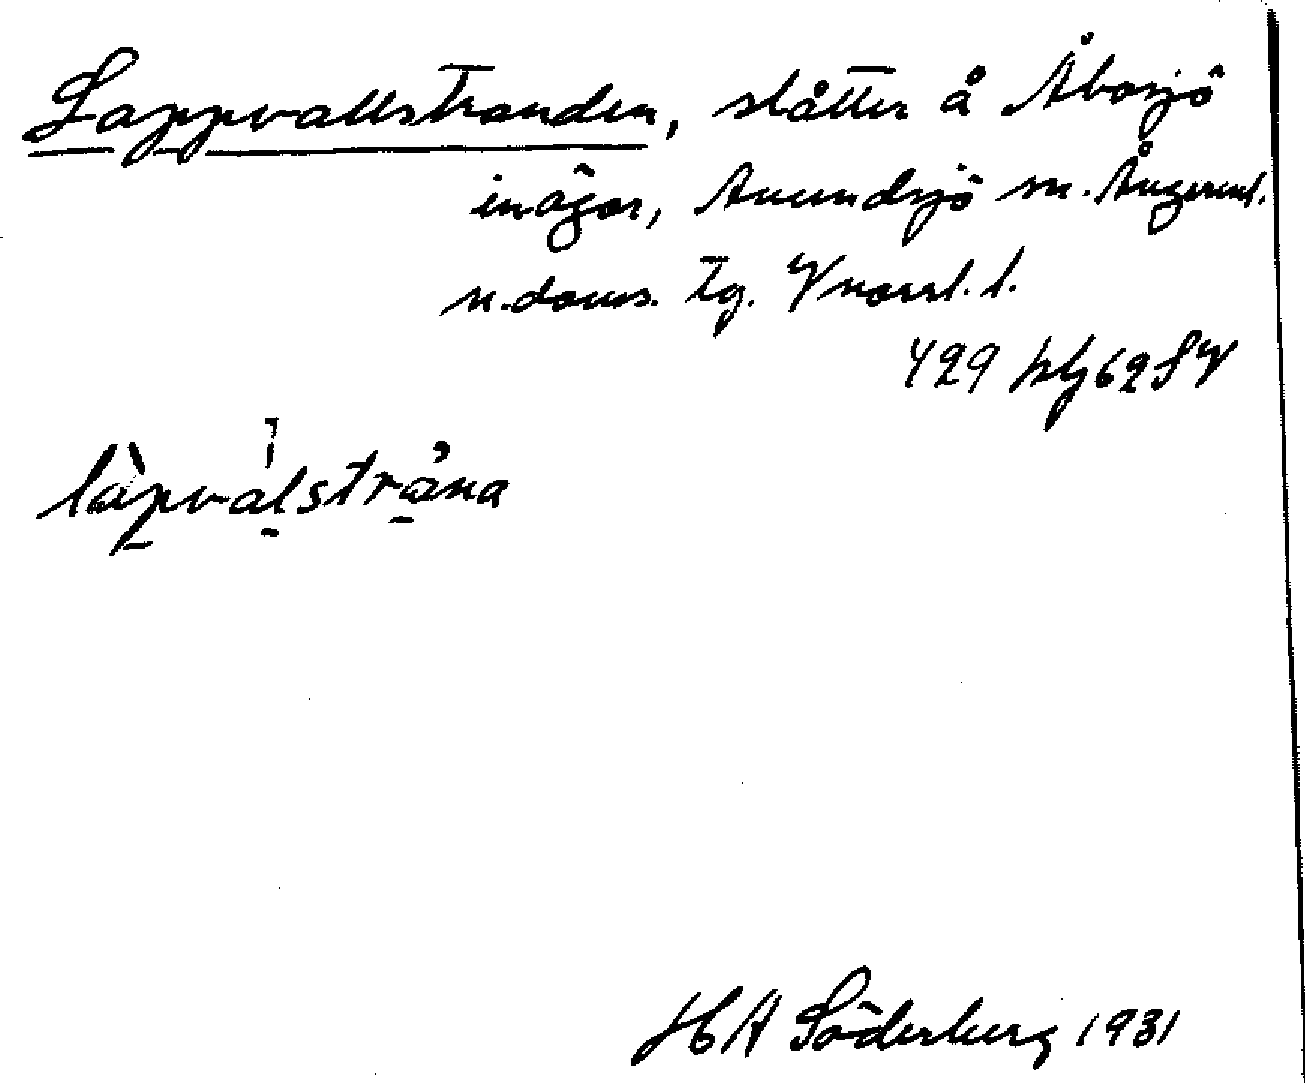 Lappvallstranden, slåtter å Åbosjö
inägor, Anundsjö sn. Ångerml.
n. doms. tg. Vnorrl. l.
429 hg 62 SV
làpvàlstrána
HA Söderberg 1931